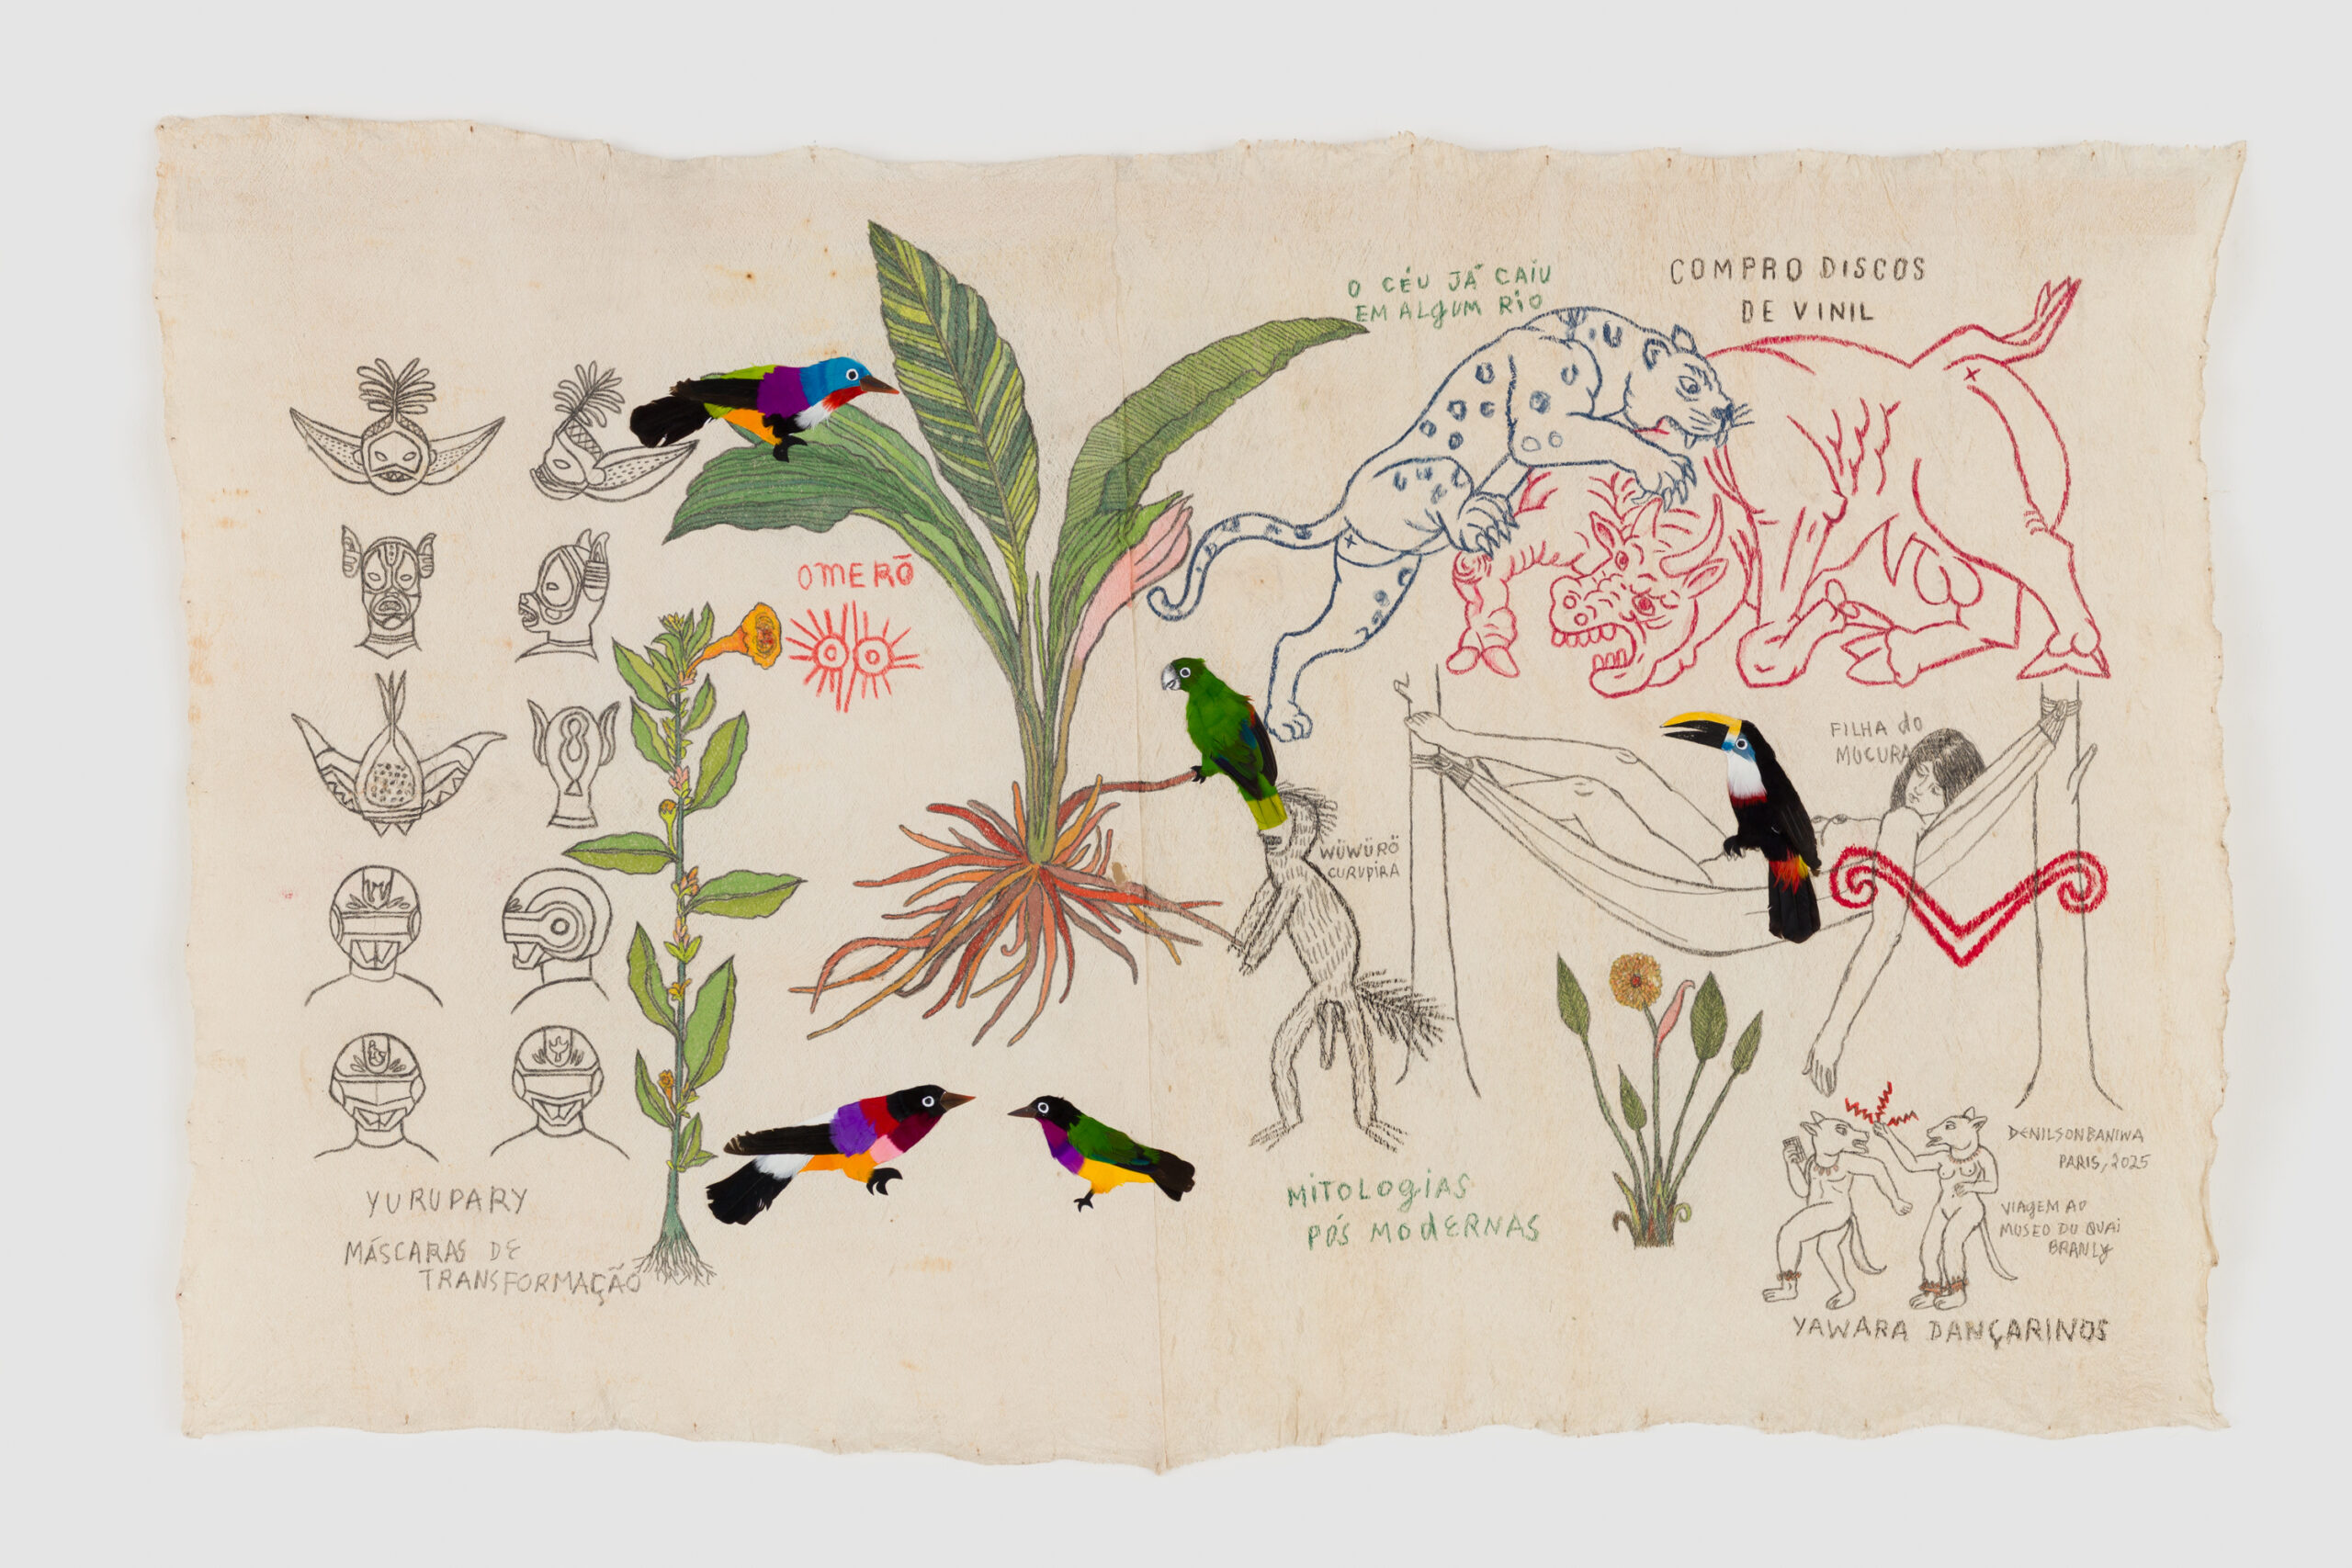 O CÉU JÁ CAIU
EM ALGUM RIO
COMPRO DISCOS
DE VINIL
OMERÕ
FILHA do
MUCURA
WÜWÜRÖ
CURUPIRA
YURUPARY
MÁSCARAS DE
TRANSFORMAÇÃO
MITOLOGIAS
PÓS MODERNAS
DENILSONBANIWA
PARIS, 2025
VIAGEM AO
MUSEO DU QUAI
BRANLY
YAWARA DANÇARINOS